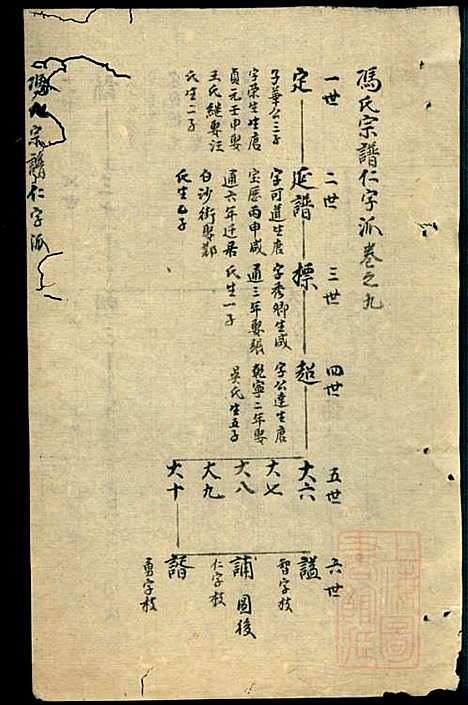 馮氏宗譜仁字派卷之九
一世
二世
三世
四世
五世
六世
定
子華公三子
字榮生生唐
貞元壬申娶
王氏継娶汪
氏生二子
延譜
字可道生唐
宝慶丙申咸
通六年迁居
白沙街娶鄭
氏生乙子
標
字秀卿生咸
通三年娶張
氏生一子
超
字公達生唐
乾寧二年娶
吳氏生五子
大六
大七
大八
大九
大十
謚
智字枝
誧
圖後
仁字枝
勇字枝
宗譜仁字派